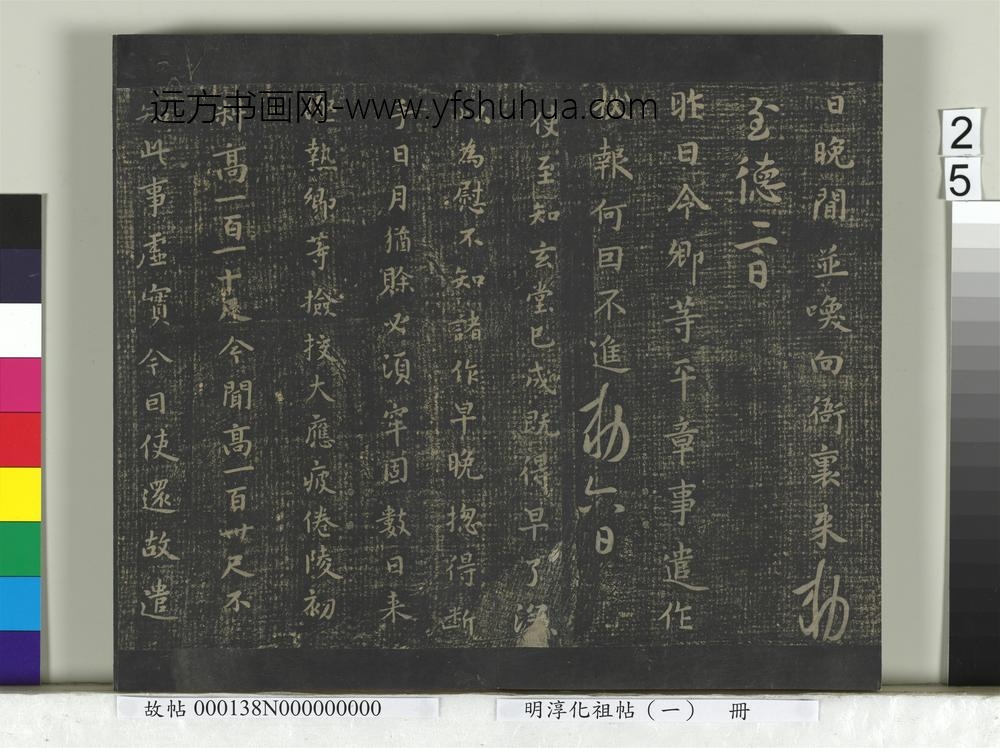 日晚間並喚向衙裏来勅
至德二日
昨日今卿等平章事遣作
報何回不進勅六日
使至知玄堂已成既得早了深
為慰不知諸作早晚揔得断
手日月猶賒必須牢固數日来
執卿等撿挍大應疲倦陵初
料高一百一十尺今聞高一百卅尺不
此事虛實今日使還故遣
远方书画网-www.yfshuhua.com
2
5
故帖 000138N000000000
明淳化祖帖（一） 冊